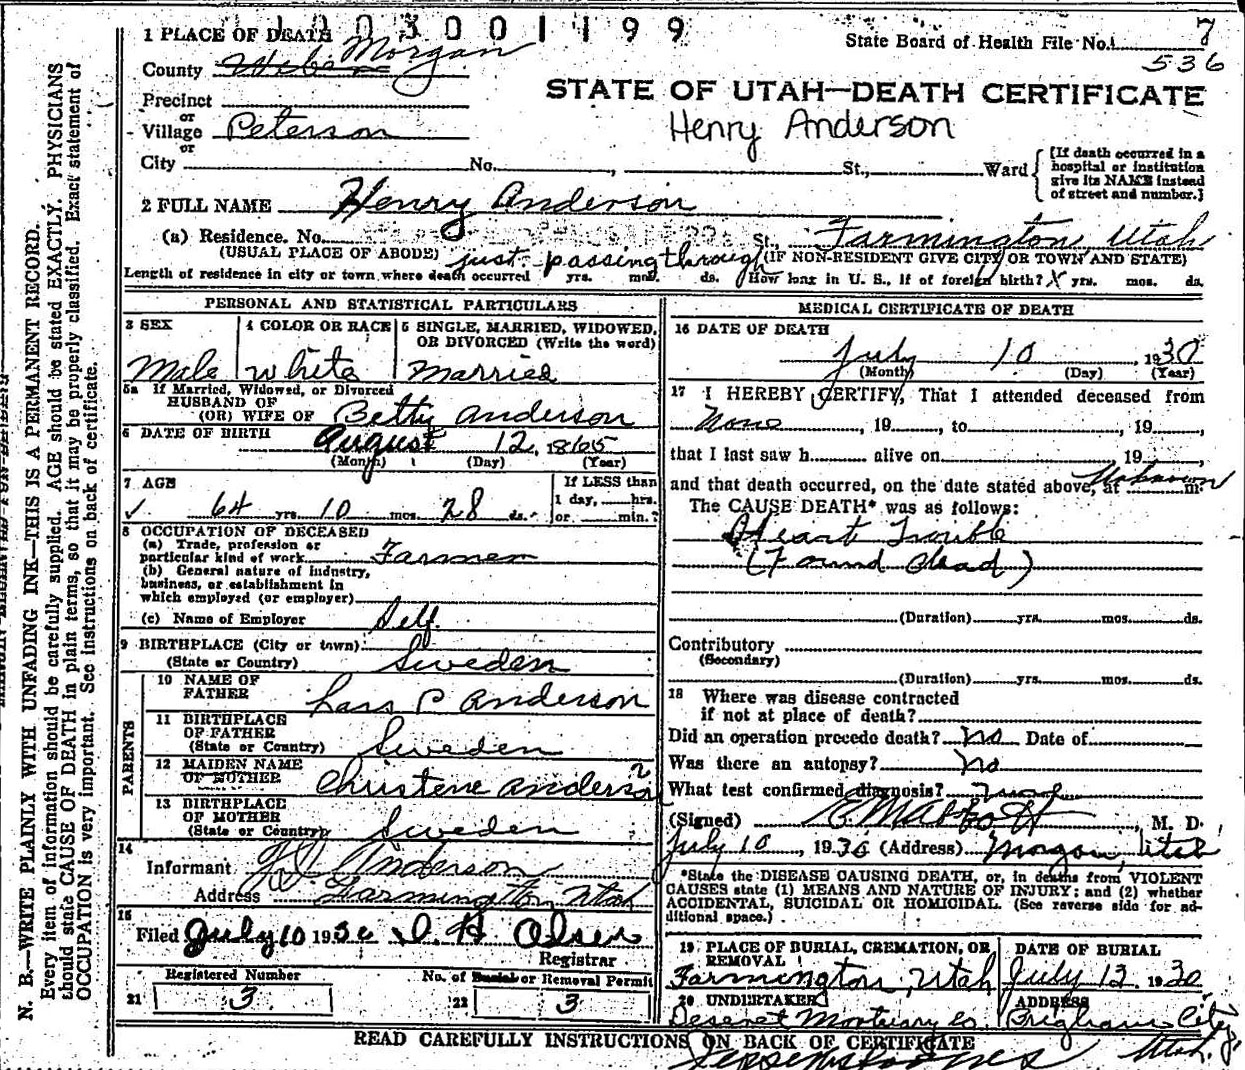 1003001199
1 PLACE OF DEATH
State Board of Health File No. 7
536
County Weber Morgan
STATE OF UTAH—DEATH CERTIFICATE
Precinct
or
Village Peterson
or
Henry Anderson
City No. , St., Ward
[If death occurred in a
hospital or institution
give its NAME instead
of street and number.]
2 FULL NAME Henry Anderson
(a) Residence. No. St., Farmington, Utah
(USUAL PLACE OF ABODE) just passing through (IF NON-RESIDENT GIVE CITY OR TOWN AND STATE)
Length of residence in city or town where death occurred yrs. mos. ds. How long in U. S., if of foreign birth? x yrs. mos. ds.
PERSONAL AND STATISTICAL PARTICULARS
3 SEX
Male
4 COLOR OR RACE
White
5 SINGLE, MARRIED, WIDOWED,
OR DIVORCED (Write the word)
Married
5a If Married, Widowed, or Divorced
HUSBAND OF
(OR) WIFE OF Betty Anderson
6 DATE OF BIRTH August 12, 1865
(Month) (Day) (Year)
7 AGE
64 yrs. 10 mos. 28 ds.
If LESS than
1 day, hrs.
or min.?
8 OCCUPATION OF DECEASED
(a) Trade, profession or
particular kind of work Farmer
(b) General nature of industry,
business, or establishment in
which employed (or employer)
(c) Name of Employer Self
9 BIRTHPLACE (City or town)
(State or Country) Sweden
PARENTS
10 NAME OF
FATHER Lars P Anderson
11 BIRTHPLACE
OF FATHER
(State or Country) Sweden
12 MAIDEN NAME
OF MOTHER Christene Anderson
13 BIRTHPLACE
OF MOTHER
(State or Country) Sweden
14
Informant Anderson
Address Farmington, Utah
15
Filed July 10 1930 Olsen
Registrar
Registered Number
21 3
No. of Burial or Removal Permit
22 3
MEDICAL CERTIFICATE OF DEATH
16 DATE OF DEATH
July 10, 1930
(Month) (Day) (Year)
17 I HEREBY CERTIFY, That I attended deceased from
None, 19 , to , 19 ,
that I last saw h alive on , 19 ,
and that death occurred, on the date stated above, at Unknown m.
The CAUSE DEATH* was as follows:
Heart Trouble
(Found dead)
(Duration) yrs. mos. ds.
Contributory
(Secondary)
(Duration) yrs. mos. ds.
18 Where was disease contracted
if not at place of death?
Did an operation precede death? No Date of
Was there an autopsy? No
What test confirmed diagnosis?
(Signed) , M. D.
July 10, 1930 (Address) Morgan, Utah
*State the DISEASE CAUSING DEATH, or, in deaths from VIOLENT
CAUSES state (1) MEANS AND NATURE OF INJURY; and (2) whether
ACCIDENTAL, SUICIDAL OR HOMICIDAL. (See reverse side for ad-
ditional space.)
19 PLACE OF BURIAL, CREMATION, OR
REMOVAL
Farmington, Utah
DATE OF BURIAL
July 12 1930
20 UNDERTAKER
Deseret Mortuary Co.
ADDRESS
Brigham City
Utah
READ CAREFULLY INSTRUCTIONS ON BACK OF CERTIFICATE
N. B.—WRITE PLAINLY WITH UNFADING INK—THIS IS A PERMANENT RECORD.
Every item of information should be carefully supplied. AGE should be stated EXACTLY. PHYSICIANS
should state CAUSE OF DEATH in plain terms, so that it may be properly classified. Exact statement of
OCCUPATION is very important. See instructions on back of certificate.